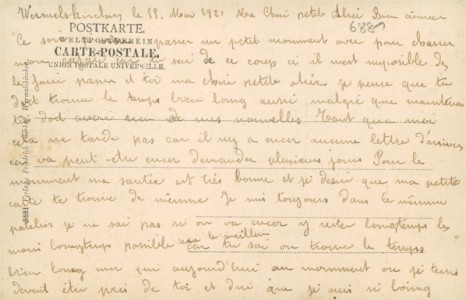 Wermelskirchen le 11. Mai 1921 Ma Cher petite Alice Bien aimer
688
POSTKARTE.
WELTPOSTVEREIN
CARTE-POSTALE.
UNION POSTALE UNIVERSELLE.
Ce soir passer un petit monument avec pour chasser
mon sai de ce coup ci il m'est imposible de
le faire et toi ma chair petite alice je pense que tu
doit trouver le temps bien long aussi malgré que maintenant
tu doit avoir de mes nouvelles Tant qua moi
cela me tarde pas car il n'y a encor aucune lettre d'arriver
cela va peut etre encor demander plusieurs jours Pour le
monument ma santée est très bonne et je désir que ma petite
carte te trouve de maime Je suis toujours dans le maime
patelin je ne sai pas si on va encor y rester longtemps le
moin longtemps posible le meilleur car tu sai on trouve le temps
bien long moi qui aujourd'hui au monument ou je
devait être près de toi et dui que je suis si loing